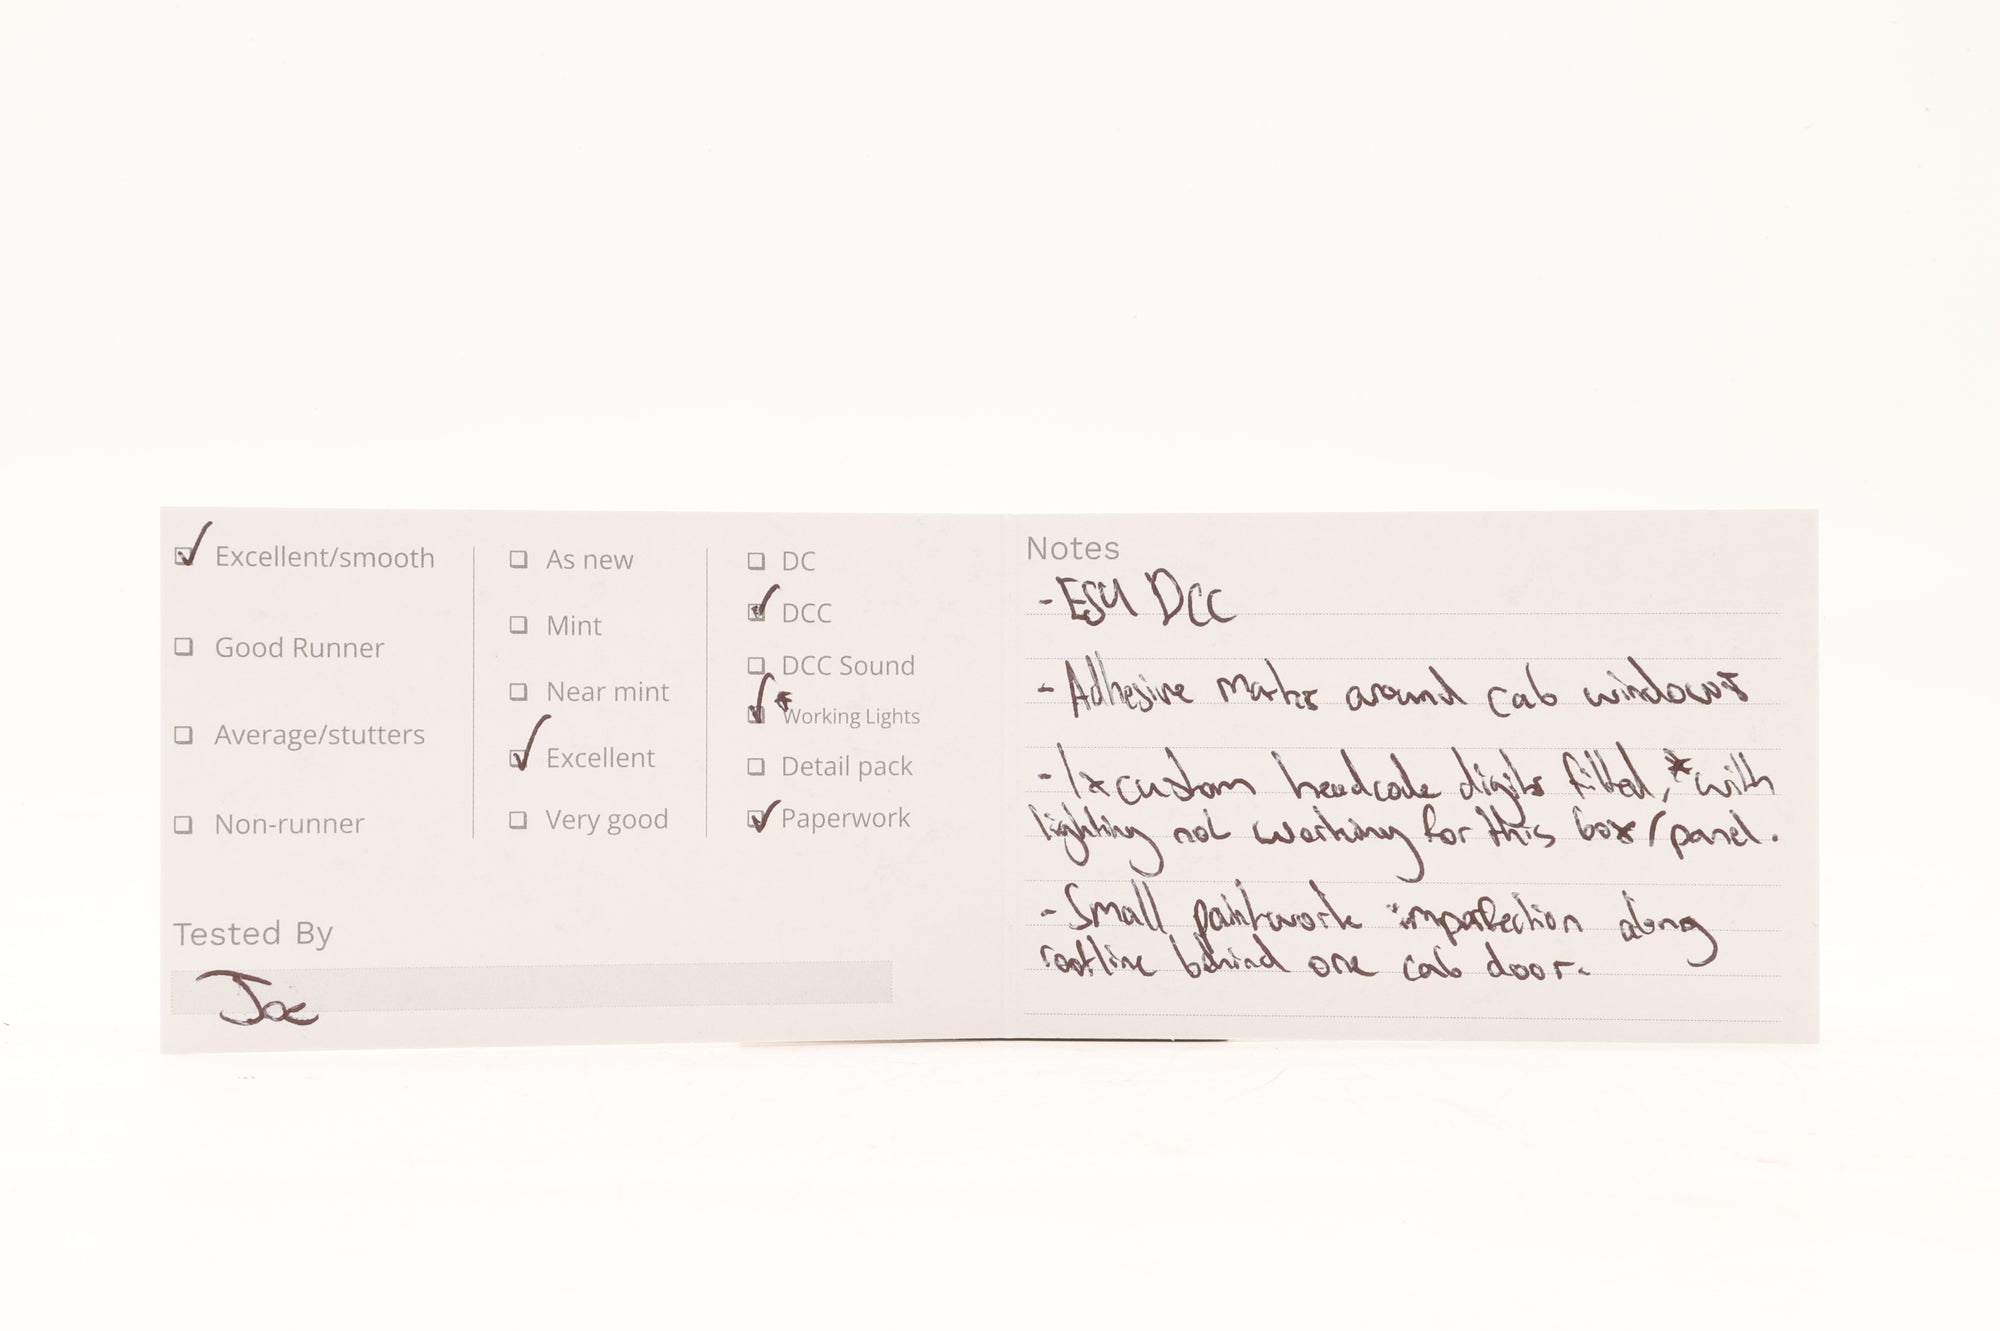 Excellent/smooth
Good Runner
Average/stutters
Non-runner
As new
Mint
Near mint
Excellent
Very good
DC
DCC
DCC Sound
* Working Lights
Detail pack
Paperwork
Tested By
Joe
Notes
- ESU DCC
- Adhesive marks around cab windows
- 1x custom headcode digits fitted, *with
lighting not working for this box/panel.
- Small paintwork imperfection along
roofline behind one cab door.